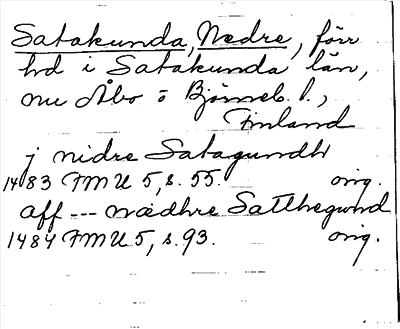 Satakunda, Nedre, förr
hd i Satakunda län,
nu Åbo o Björneb. l.,
Finland
j nidre Satagundh
1483 FMU 5, s. 55. orig.
aff --- nædhre Satthegwnd
1484 FMU 5, s. 93. orig.